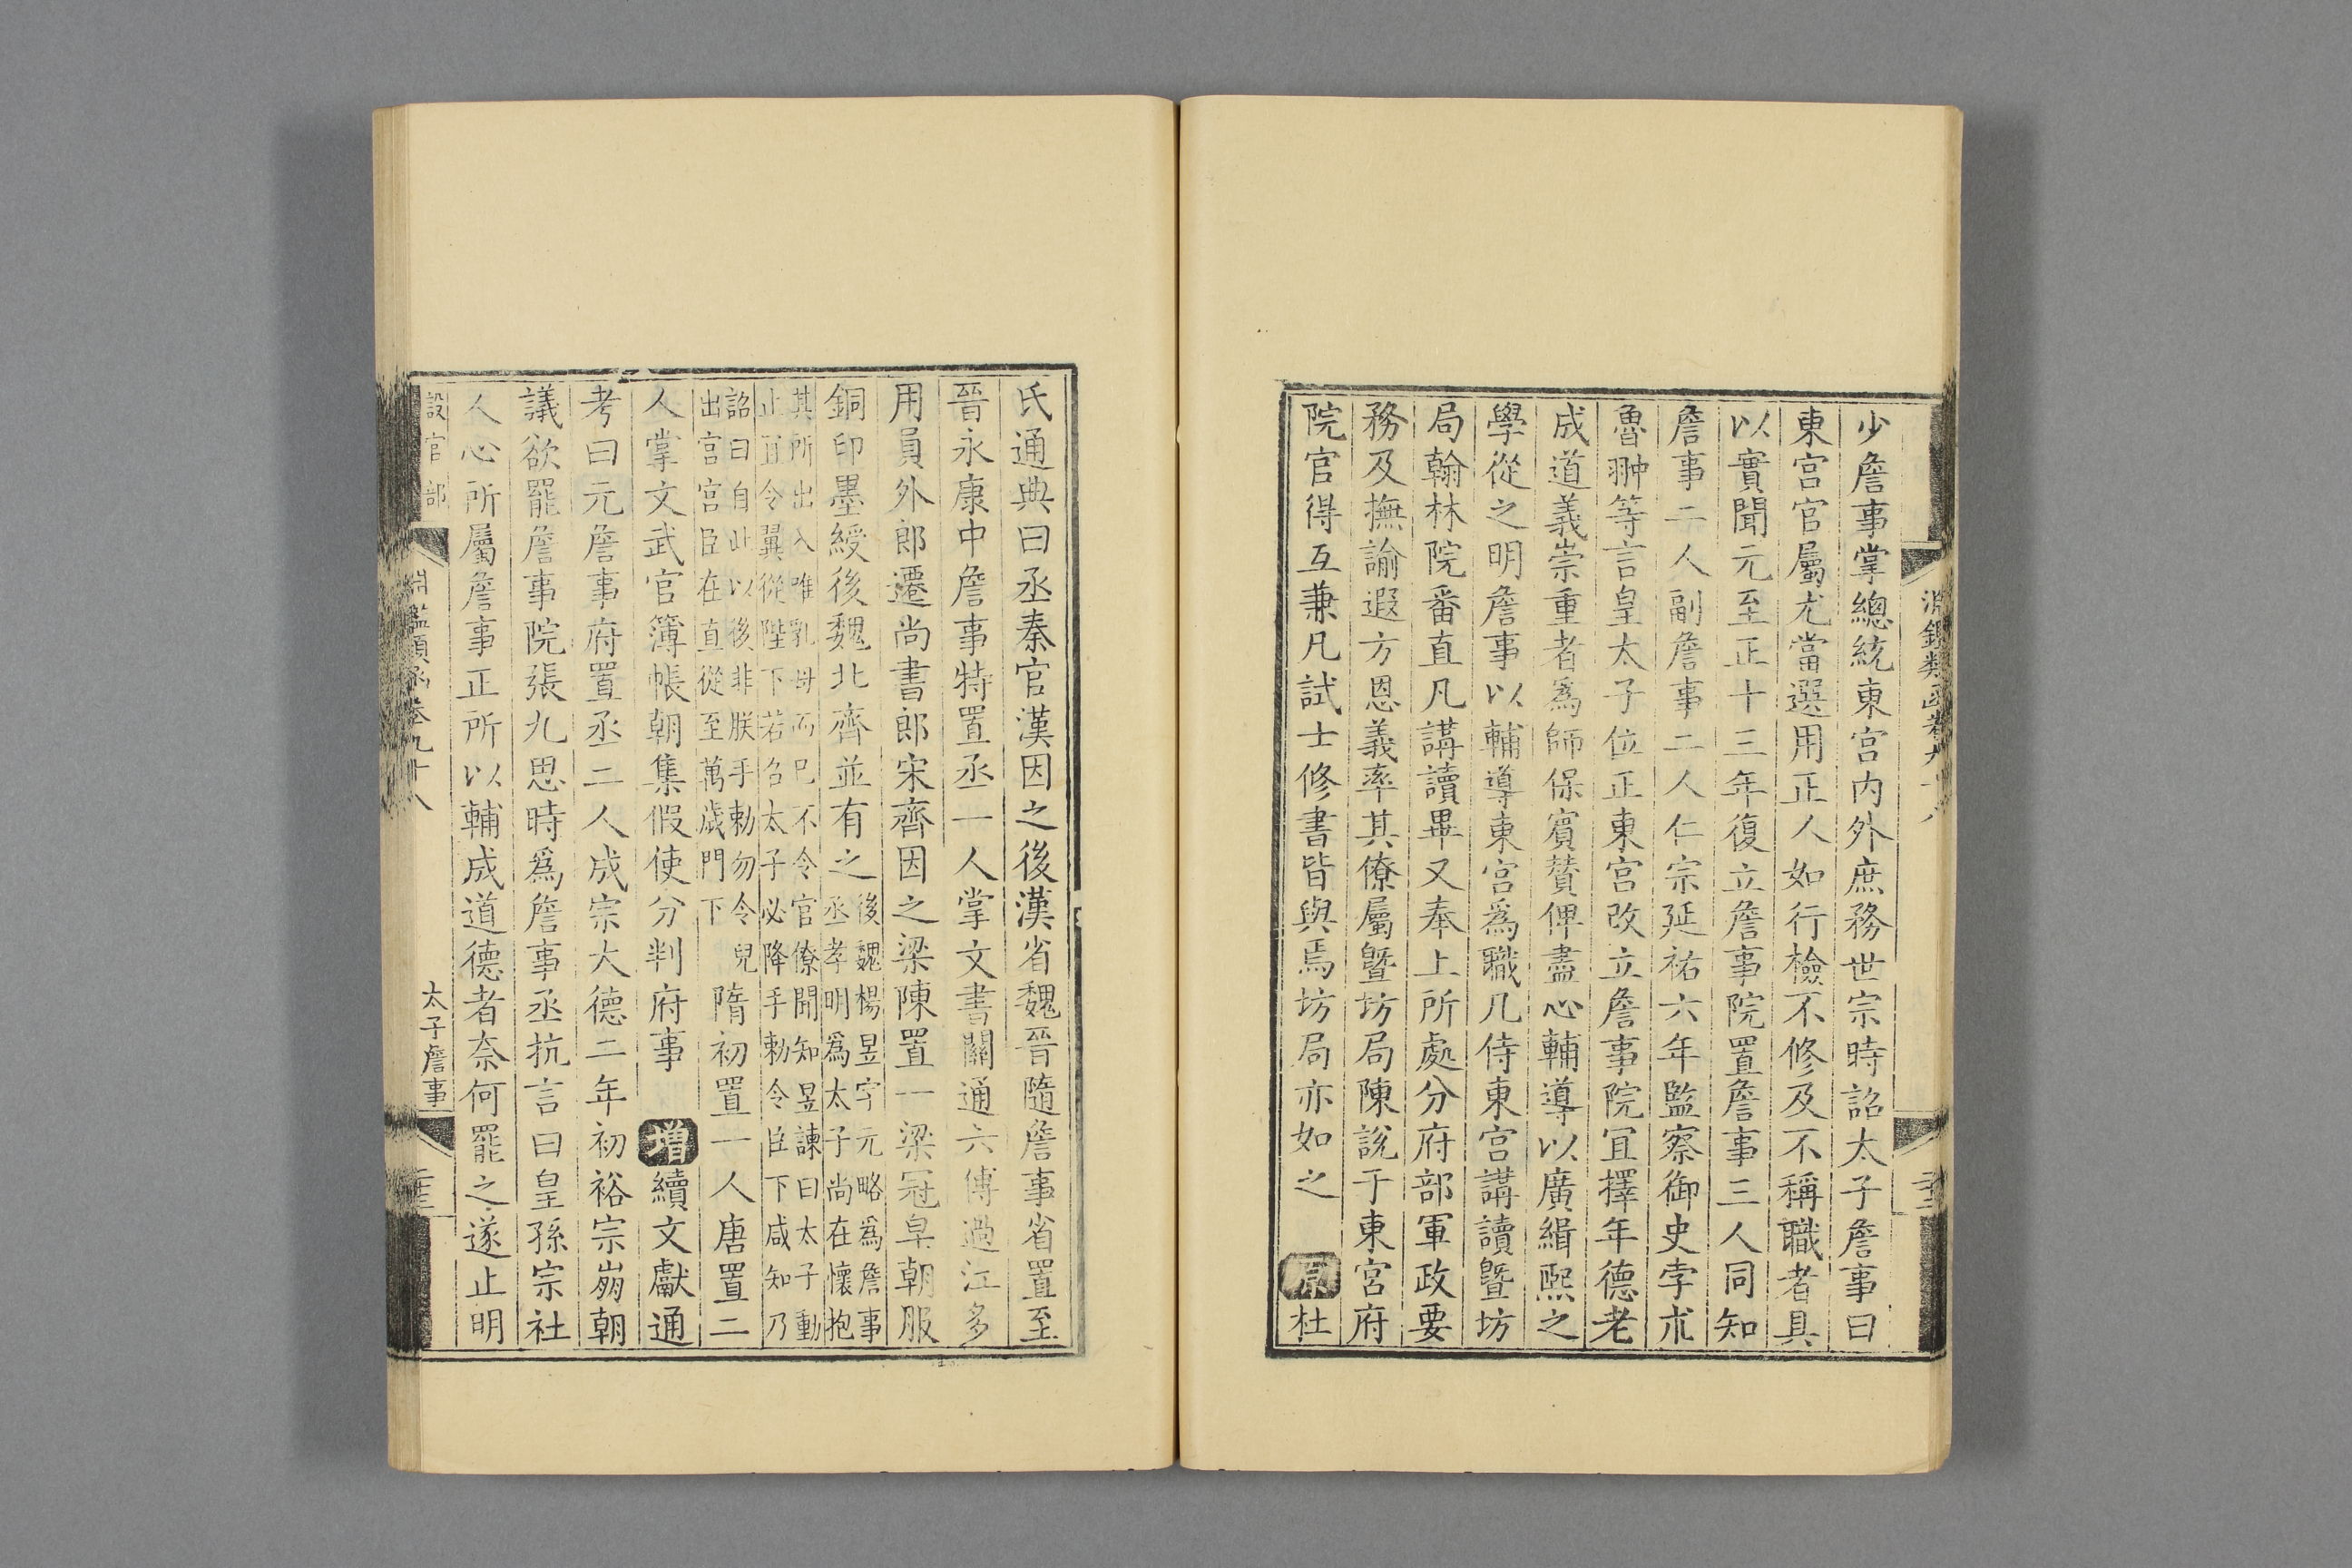 少詹事掌總統東宮内外庶務世宗時詔太子詹事曰
東宮官屬尤當選用正人如行檢不修及不稱職者具
以實聞元至正十三年復立詹事院置詹事三人同知
詹事二人副詹事二人仁宗延祐六年監察御史孛朮
魯翀等言皇太子位正東宮改立詹事院宜擇年德老
成道義崇重者爲師保賓贊俾盡心輔導以廣緝熙之
學從之明詹事以輔導東宮爲職凡侍東宮講讀暨坊
局翰林院番直凡講讀畢又奉上所處分府部軍政要
務及撫諭遐方恩義率其僚屬暨坊局陳說于東宮府
院官得互兼凡試士修書皆與焉坊局亦如之 原 杜
氏通典曰丞秦官漢因之後漢省魏晉隨詹事省置至
晉永康中詹事特置丞一人掌文書關通六傅過江多
用員外郎遷尚書郎宋齊因之梁陳置一梁冠皁朝服
銅印墨綬後魏北齊並有之 後魏楊昱字元略爲詹事
丞孝明爲太子尚在懷抱
其所出入唯乳母而已不令官僚聞知昱諫曰太子動
止宜令翼從陛下若召太子必降手勅令臣下咸知乃
詔曰自此以後非朕手勅勿令兒
出宮宮臣在直從至萬歲門下 隋初置一人唐置二
人掌文武官簿帳朝集假使分判府事 增 續文獻通
考曰元詹事府置丞二人成宗大德二年初裕宗崩朝
議欲罷詹事院張九思時爲詹事丞抗言曰皇孫宗社
人心所屬詹事正所以輔成道德者奈何罷之遂止明
設官部 淵鑑類函卷九十八 太子詹事